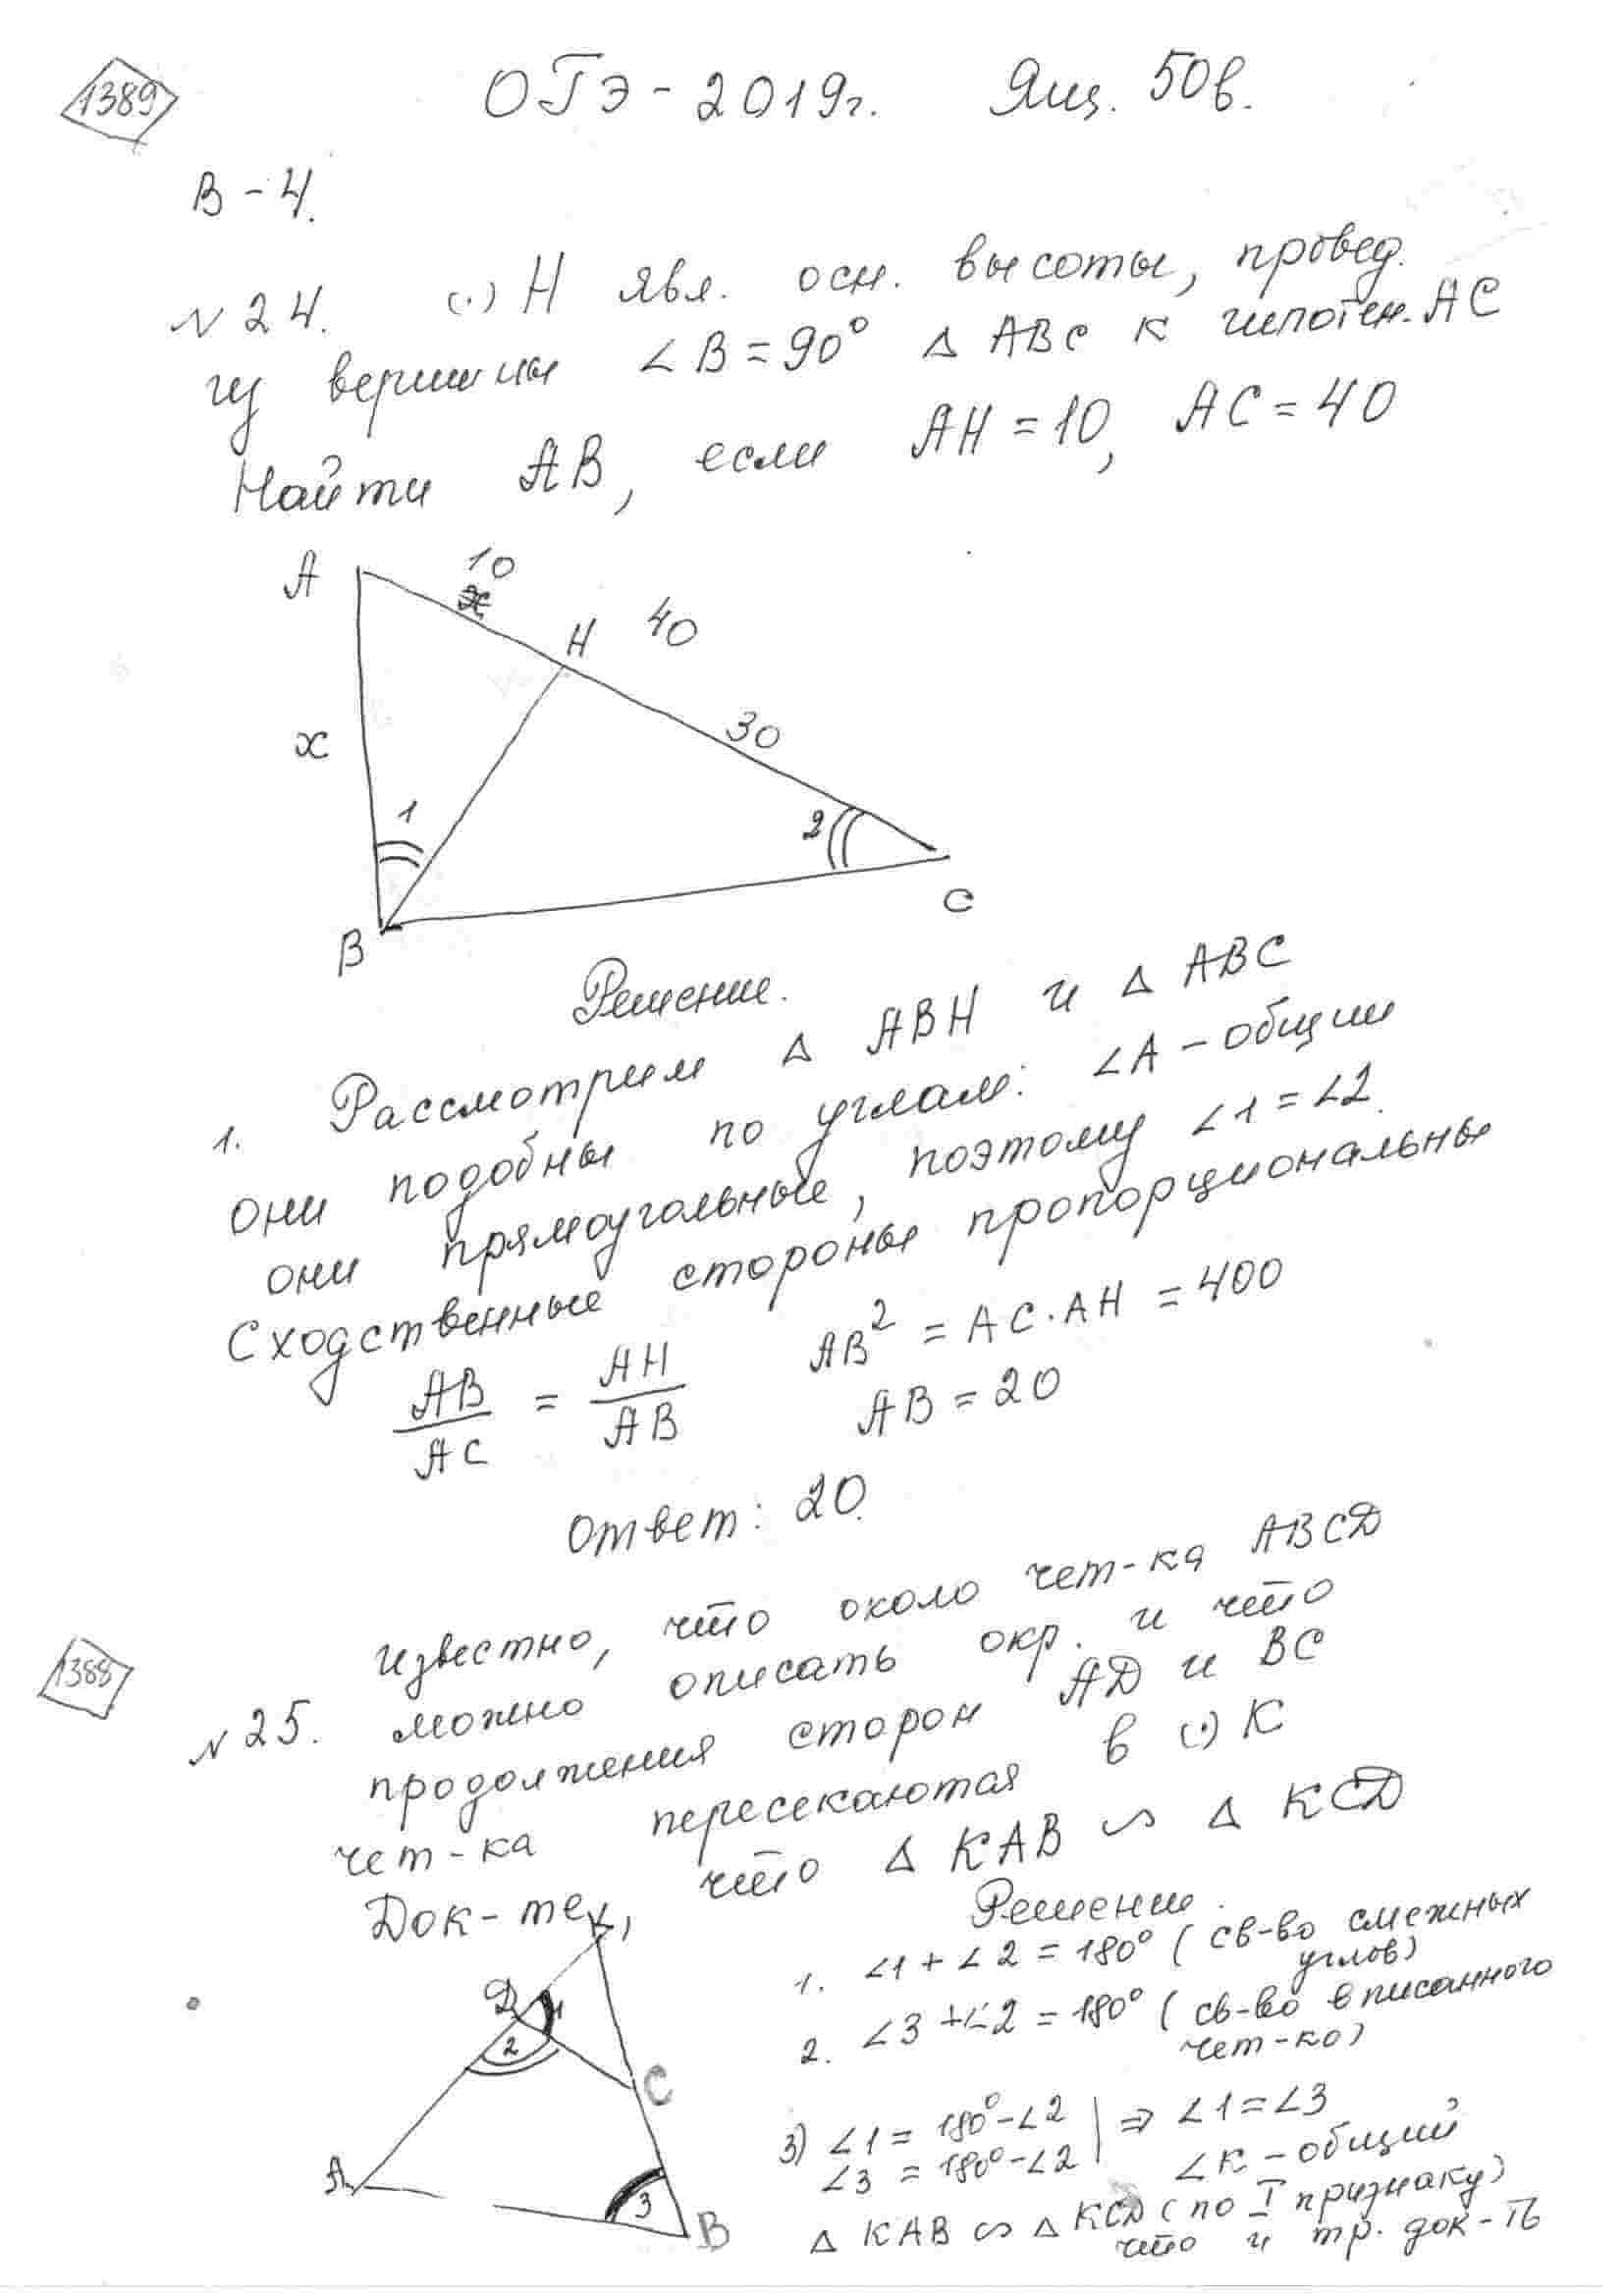 1389
ОГЭ - 2019г. Ящ. 50в.
В - 4.
№ 24. (·) H явл. осн. высоты, провед.
из вершины ∠B = 90° △ ABC к гипотен. AC
Найти AB, если AH = 10, AC = 40
A 10
x
H 40
30
x
1
2
C
B
Решение.
1. Рассмотрим △ ABH и △ ABC
они подобны по углам: ∠A - общий
они прямоугольные, поэтому ∠1 = ∠2.
Сходственные стороны пропорциональны
AB/AC = AH/AB AB² = AC · AH = 400
AB = 20
Ответ: 20.
1388
№ 25. Известно, что около чет-ка ABCD
можно описать окр. и что
продолжения сторон AD и BC
чет-ка пересекаются в (·) K
Док-те, что △ KAB ∽ △ KCD
Решение.
1. ∠1 + ∠2 = 180° (св-во смежных
углов)
2. ∠3 + ∠2 = 180° (св-во вписанного
чет-ка)
3) ∠1 = 180° - ∠2 | ⇒ ∠1 = ∠3
∠3 = 180° - ∠2 | ∠K - общий
△ KAB ∽ △ KCD (по I признаку)
что и тр. док-ть
K
D 1
2
C
A
3
B